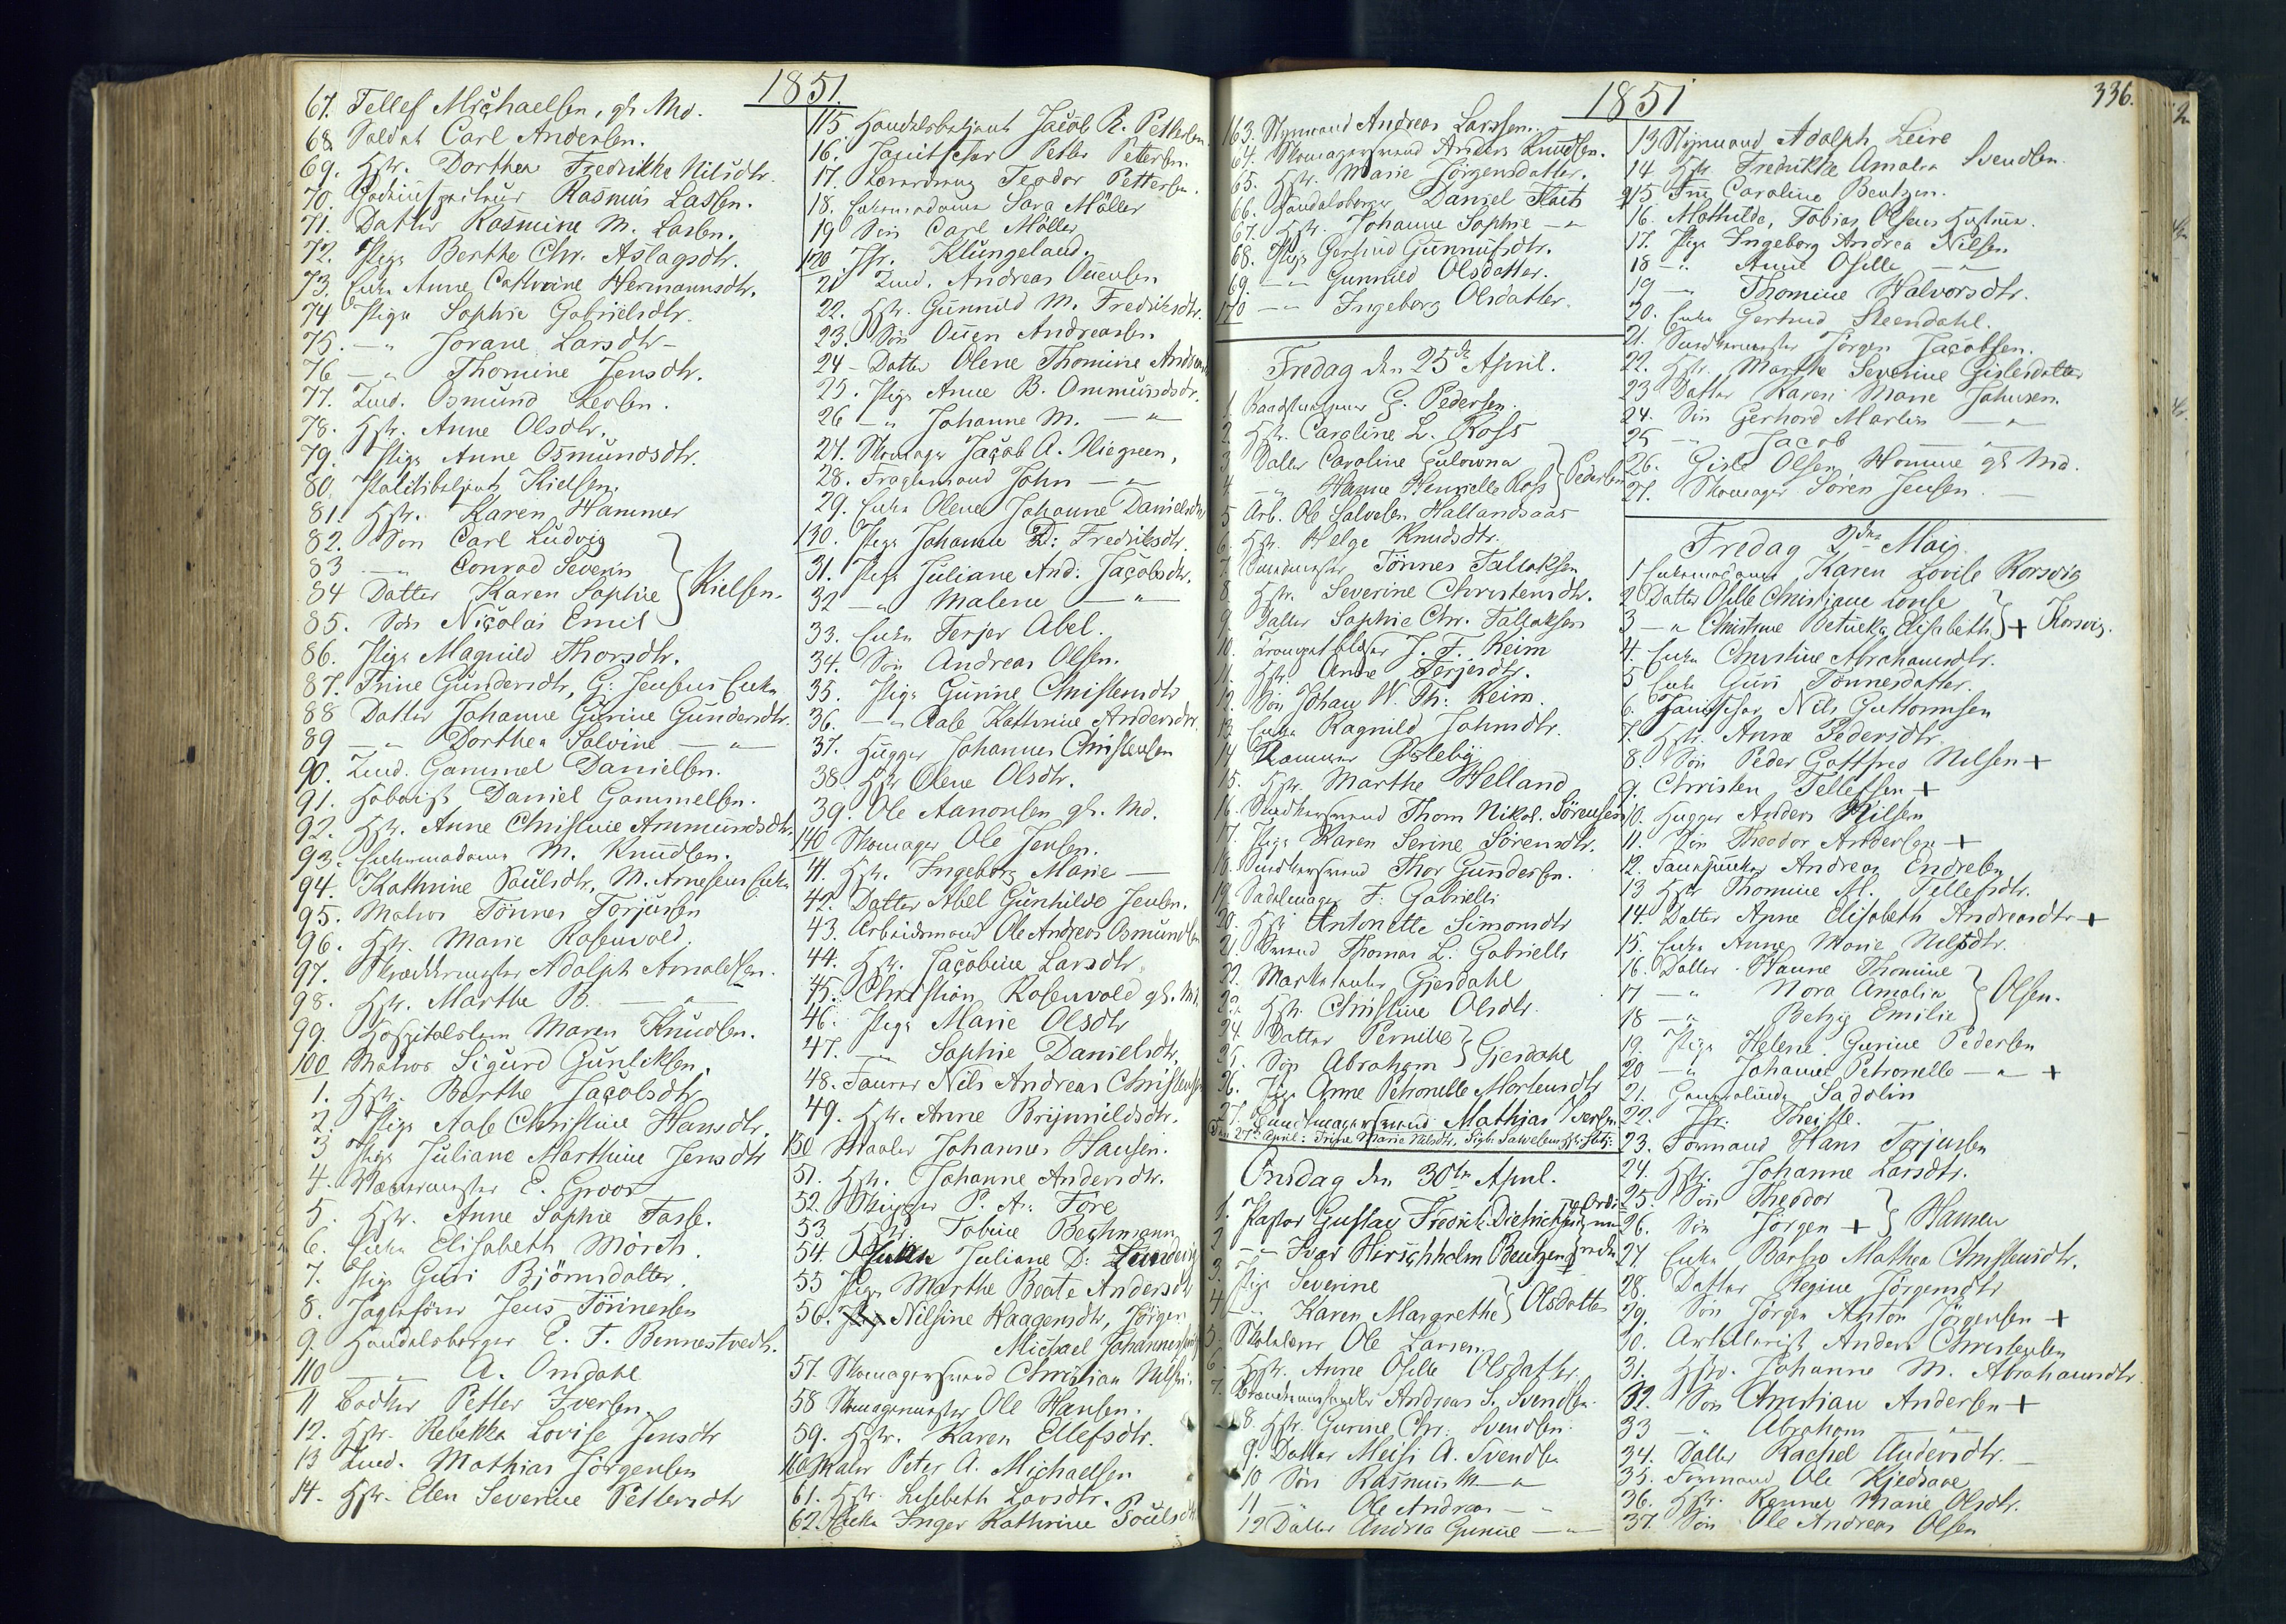 1851.
67. Tellef Michaelsen, gl. Md.
68 Soldat Carl Andersen.
69. Hstr. Dorthea Fredrikke Nilsdtr.
70. Rasmus Lassen.
71. Datter Rasmine M. Lassen.
72. Pige Berthe Chr. Aslagsdtr.
73. Enke Anne Cathrine Hermannsdtr.
74 Pige Sophie Gabrielsdtr.
75. —„ Jorane Larsdtr —
76 —„ Thomine Jensdtr.
77. Osmund Leisen.
78. Hstr. Anne Olsdtr.
79. Pige Anne Osmundsdtr.
80. Politibetjent Kielsen.
81. Hstr. Karen Hammer
82. Søn Carl Ludvig
83 —„ Conrad Severin
84 Datter Karen Sophie } Kielsen.
85. Søn Nicolai Emil
86. Pige Magnild Thorsdtr.
87. Trine Gundersdtr, G: Jensens Enke
88 Datter Johanne Gurine Gundersdtr.
89 —„— Dorthea Salvine —„—
90. Gammel Danielsen.
91. Hoboist Daniel Gammelsen.
92. Hstr. Anne Christine Ammundsdtr.
93. Enkemadame M. Knudsen.
94. Kathrine Poulsdtr, M. Arnesens Enke
95. Matros Tönnes Torjusen
96. Hstr. Marie Rosenvold.
97. Skræddermester Adolph Arnoldsen.
98. Hstr. Marthe B. —„—
99. Hospitalslem Maren Knudsen.
100 Matros Sigurd Gunleksen.
1. Hstr. Berthe Jacobsdtr
2. Pige Aase Christine Hansdtr.
3 Pige Juliane Marthine Jensdtr
4. E. Groos
5. Hstr. Anne Sophie Tasse.
6. Enke Elisabeth Mörch.
7. Pige Guri Björnsdatter.
8. Jens Tönnesen
9. Handelsborger E. T. Bennestvedt.
110 —„— A. Omdahl
11 Bødker Petter Iversen.
12. Hstr. Rebekka Lovise Jensdtr
13 Mathias Jörgensen
14. Hstr. Elen Severine Pettersdtr
115. Handelsbetjent Jacob R. Pettersen.
16. Janitschar Peter Petersen.
17. Teodor Pettersen.
18. Enkemadame Sara Möller
19 Søn Carl Möller
120 Jfr. Klungeland.
21 Andreas Ouensen
22. Hstr. Gunnild M. Fredriksdtr.
23. Søn Ouen Andreasen
24 — Datter Olene Thomine
25. Pige Anne B. Ommundsdtr.
26 —„ Johanne M. —„—
27. Skomager Jacob A. Hiegreen,
28. Fragtemand John —„—
29. Enke Olene Johanne Danielsdtr
130. Pige Johanne D: Fredriksdtr.
31. Pige Juliane And: Jacobsdtr.
32 —„ Malene —„—
33. Enke Terjer Abel.
34. Søn Andreas Olsen.
35. Pige Gurine Christensdtr
36. —„ Aase Kathrine Andersdtr
37. Hugger Johannes Christensen
38. Hstr Olene Olsdtr.
39. Ole Aanonsen gl. Md.
140 Skomager Ole Jensen.
41. Hstr. Ingeborg Marie —
42. Datter Abel Gunhilde Jensen.
43. Arbeidsmand Ole Andreas Osmundsen
44. Hstr. Jacobine Larsdtr
45. Christian Rosenvold gl. Md.
46. Pige Marie Olsdtr
47. —„ Sophie Danielsdtr.
48. Nils Andreas Christensen
49. Hstr. Anne Brynnildsdtr.
150 Maaler Johannes Hansen.
51. Hstr. Johanne Andersdtr.
52. Skipper P. A. Fore
53. Hstr. Tobine Bechmann
54. Enke Juliane D:
55 Pige Marthe Beate Andersdtr
56. Nilsine Haagensdtr, Jörgen
Michael Johannesens
57. Skomagersvend Christian Nilsen.
58 Skomagermester Ole Hansen.
59. Hstr. Karen Ellefsdtr.
160 Maler Peter A. Michaelsen
61. Hstr. Lisebeth Larsdtr.
62. Enke Inger Kathrine Poulsdtr
1851
336.
163. Styrmand Andreas Larsen.
64. Skomagersvend Anders Knudsen.
65. Hstr. Marie Jörgensdatter.
66. Handelsborger Daniel
67. Hstr. Johanne Sophie —„
68. Pige Gertrud Gunnufsdtr.
69. —„ Gunnild Olsdatter.
170 —„ Ingeborg Olsdatter.
Fredag den 25de April.
1. G. Pedersen.
2. Hstr. Caroline L. Ross
3. Datter Caroline Gulowna
4 —„ Hanne Henriette Ross } Pedersen
5 Arb. Ole Salvesen Hallandsaas
6. Hstr. Helge Knudsdtr.
7. Tönnes Tallaksen
8. Hstr. Severine Christensdtr.
9. Datter Sophie Chr. Tallaksen
10. Trompetblæser J. F. Keim
11. Hstr. Anne Terjesdtr.
12. Søn Johan W. Th. Keim.
13. Enke Ragnild Johnsdtr.
14 Ramme Oslebig
15. Hstr. Marthe Helland
16. Snedkersvend Thom Nikol. Sörensen
17. Pige Karen Serine Sörensdtr.
18. Snedkersvend Thor Gundersen.
19. Sadelmager F. Gabrielli
20. Hstr Antonette Simonsdtr
21. Svend Thomas L. Gabrielli
22. Gjerdahl
23. Hstr. Christine Olsdtr.
24. Datter Pernille
25. Søn Abraham } Gjerdahl
26. Pige Anne Petronelle Mortensdtr
27. Mathias Iversen.
Den 27de April: Trine Marie Nilsdtr, Sigb. Salvesens
Onsdag den 30te April.
1. Pastor Gustav Fredrik Dietrichson
2 —„ Ivar Hirschholm Bentzen
3. Pige Severine
4 —„ Karen Margrethe } Olsdatter
5. Skolelærer Ole Larsen
6. Hstr. Anne Oselle Olsdatter
7. Andreas S. Svendsen
8. Hstr. Gurine Chr. Svendsen.
9. Datter Meisi A. Svendsen
10 Søn Rasmus M —„
11 —„ Ole Andreas —„
12 Datter Andrea Gurine —„—
13 Styrmand Adolph Leire
14 Hstr Fredrikke Amalia Svendsen
15 Fru Caroline Bentzen.
16. Mathilde, Tobias Olsens Hustrue.
17. Pige Ingeborg Andrea Nilsen
18 —„ Anne Oselle —„
19 —„ Thomine Halvorsdtr.
20. Enke Gertrud Steendahl.
21. Snedkermester Jörgen Jacobsen.
22. Hstr. Marthe Severine Gislesdatter
23 Datter Karen Marie Johnsen.
24. Søn Gerhard Martin —„
25 —„ Jacob —„
26. Gisle Olsen Homme gl Md.
27. Skomager Sören Jensen. —
Fredag 2den Mai.
1 Enkemadame Karen Lovise Korsvig
2 Datter Oselle Christiane Lovise
3 —„ Christine Betuelia Elisabeth } + Korsvig.
4. Enke Christine Abrahamsdtr.
5 Enke Guri Tönnesdatter.
6. Janitschar Nils Guttormsen
7. Hstr. Anne Pedersdtr
8. Søn Peder Gottfred Nilsen +
9. Christen Tellefsen +
10. Hugger Anders Nilsen
11. Søn Theodor Andersen +
12. Andreas Endresen
13 Hstr Thomine M. Tellefsdtr.
14. Datter Anne Elisabeth Andreasdtr +
15. Enke Anne Marie Nilsdtr.
16. Datter Hanne Thomine
17 —„ Nora Amalia } Olsen.
18 —„ Betzy Emilie
19. Pige Helene Gurine Pedersen
20 —„ Johanne Petronelle —„ +
21. Sadolin
22. Jfr. Theiste.
23. Formand Hans Torjusen
24. Hstr. Johanne Larsdtr.
25. Søn Theodor
26. Søn Jörgen + } Hansen
27. Enke Barbro Mathea Christensdtr.
28. Datter Regine Jörgensdtr
29. Søn Jörgen Anton Jörgensen +
30. Artillerist Anders Christensen
31. Hstr. Johanne M. Abrahamsdtr
32. Søn Christian Andersen +
33 —„ Abraham —„
34. Datter Rachel Andersdtr. —
35. Formand Ole Kjedsaae
36. Hstr. Rennel Marie Olsdtr.
37. Søn Ole Andreas Olsen